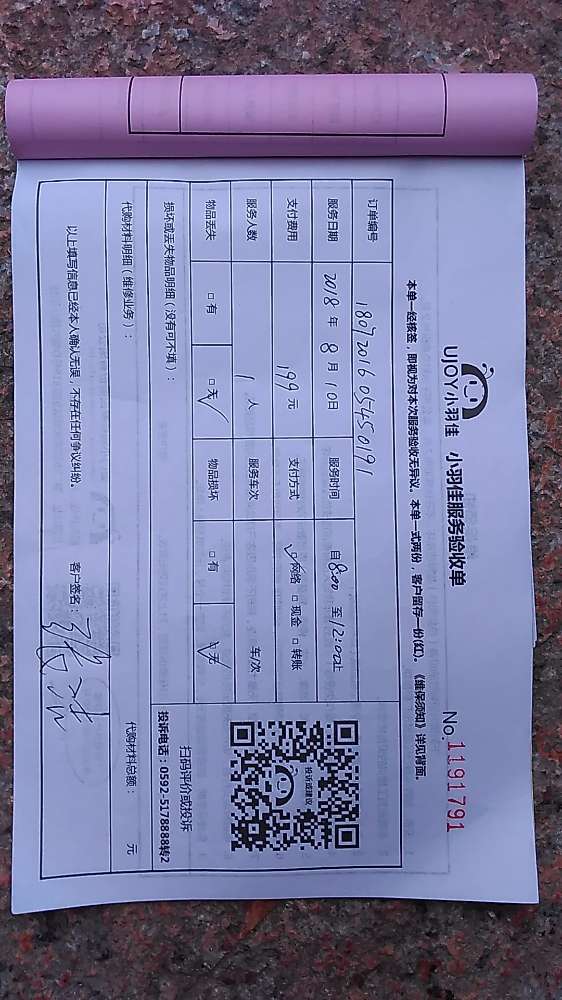 UJOY小羽佳 小羽佳服务验收单 No.1191791
本单一经核签，即视为对本次服务验收无异议。本单一式两份，客户留存一份(红)。《维保须知》详见背面。
订单编号 1807201605450191
服务日期 2018 年 8 月 10日 服务时间 自8:00 至12:00止
支付费用 199 元 支付方式 ☑网络 □ 现金 □ 转账
服务人数 1 人 服务车次 车/次
物品丢失 □ 有 ☑无 物品损坏 □ 有 ☑无
损坏或丢失物品明细（没有可不填）：
投诉或建议
扫码评价或投诉
投诉电话：0592-5178888转2
代购材料明细（维修业务）： 代购材料总额： 元
以上填写信息已经本人确认无误，不存在任何争议纠纷。 客户签名：